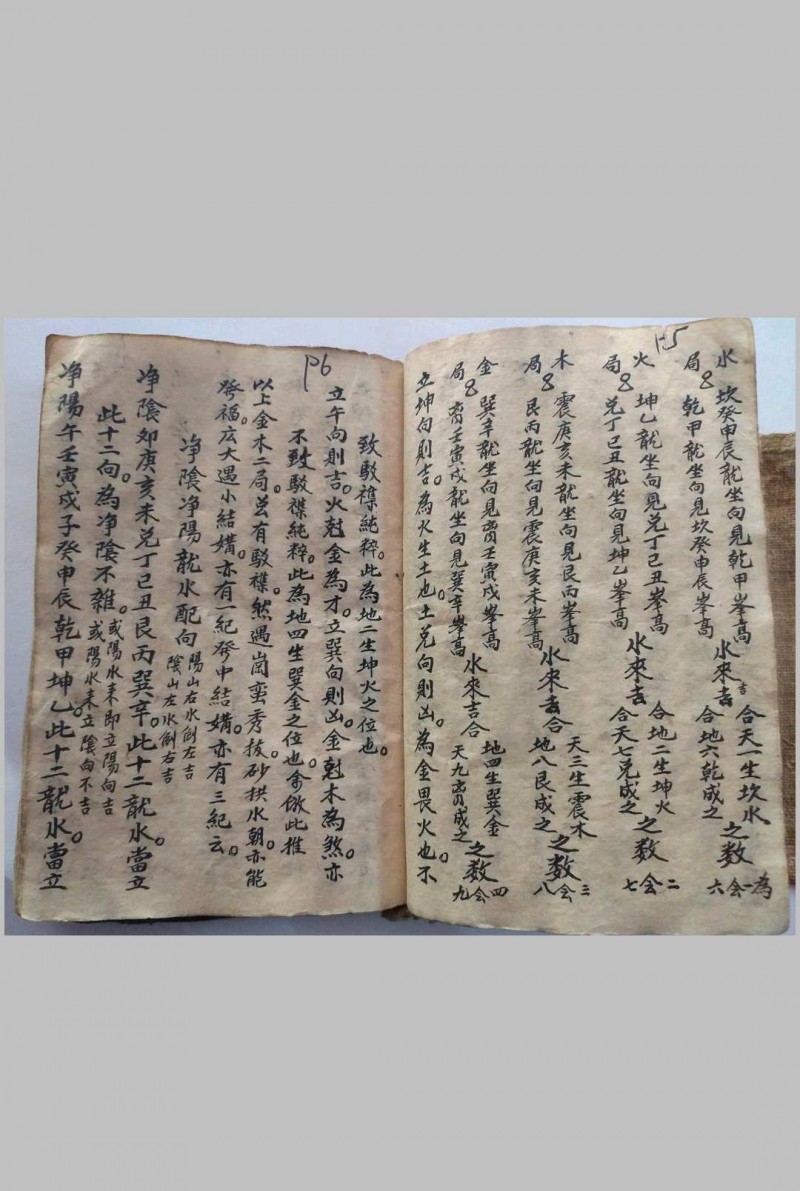 P5
水局 坎癸申辰龍坐向見乾甲峯高 乾甲龍坐向見坎癸申辰峯高 水來去吉 合天一生坎水 合地六乾成之 之数 為一会六
火局 坤乙龍坐向見兑丁巳丑峯高 兑丁巳丑龍坐向見坤乙峯高 水來去 合地二生坤火 合天七兑成之 之数 二会七
木局 震庚亥未龍坐向見艮丙峯高 艮丙龍坐向見震庚亥未峯高 水來去合 天三生震木 地八艮成之 之数 三会八
金局 巽辛龍坐向見离壬寅戌峯高 离壬寅戌龍坐向見巽辛峯高 水來吉合 地四生巽金 天九离成之 之数 四会九
立坤向則吉。為火生土也。土兑向則凶。為金畏火也。不
P6
致駁襍純粹。此為地二生坤火之位也。
立午向則吉。火尅金為才。立巽向則凶。金尅木為煞。亦
不致駁襍純粹。此為地四生巽金之位也。余倣此推
以上金木二局。总有駁襍。然遇崗巒秀拔。砂拱水朝。亦能
發福。広大遇小結媾。亦有一紀發中結媾。亦有三紀云。
净陰净陽龍水配向 陽山右水倒左吉 陰山左水倒右吉
净陰卯庚亥未兑丁巳丑艮丙巽辛。此十二龍水。當立
此十二向。為净陰不雜。或陽水來即立陽向吉 或陽水來立陰向不吉
净陽午壬寅戌子癸申辰乾甲坤乙。此十二龍水。當立